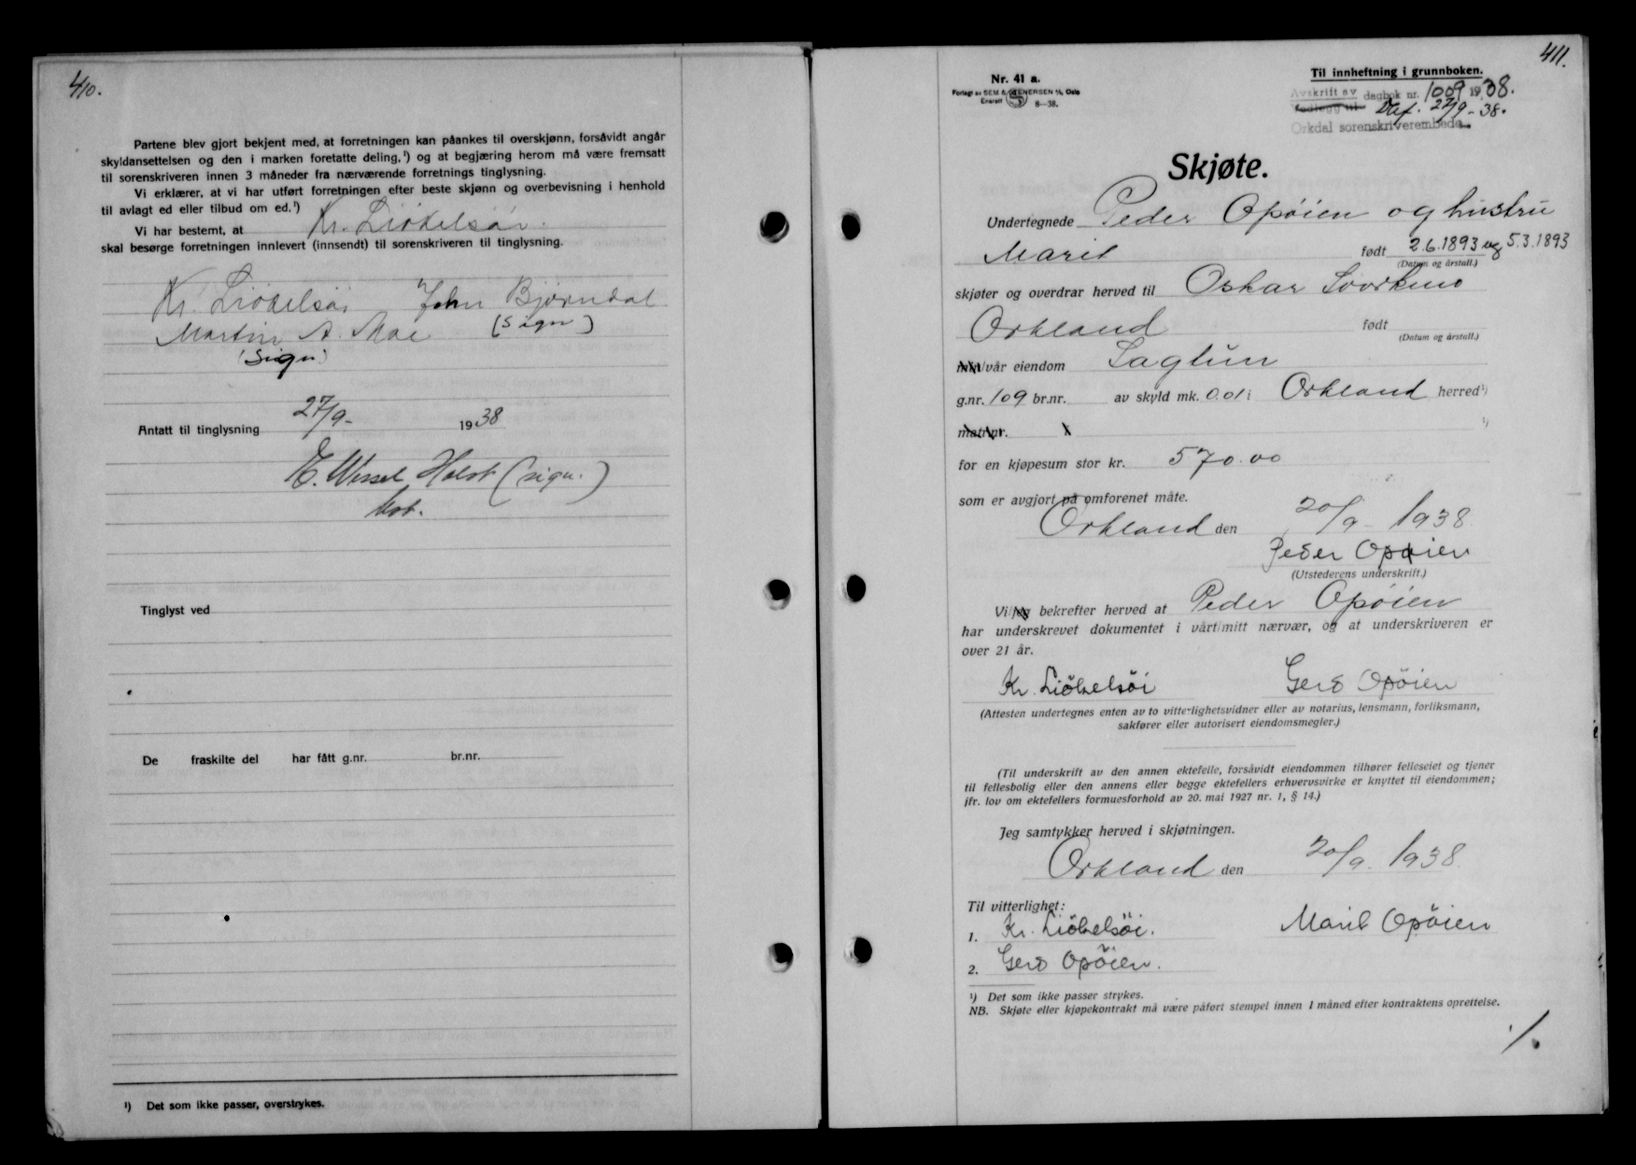 410.
Partene blev gjort bekjent med, at forretningen kan påankes til overskjønn, forsåvidt angår
skyldansettelsen og den i marken foretatte deling,¹) og at begjæring herom må være fremsatt
til sorenskriveren innen 3 måneder fra nærværende forretnings tinglysning.
Vi erklærer, at vi har utført forretningen efter beste skjønn og overbevisning i henhold
til avlagt ed eller tilbud om ed.¹)
Vi har bestemt, at Kr. Liökelsöi.
skal besørge forretningen innlevert (innsendt) til sorenskriveren til tinglysning.
Kr. Liökelsöi John Bjørndal
Martin A. Moe (Sign)
(Sign)
Antatt til tinglysning 27/9- 1938
E. Wessel Holst (sign.)
Tinglyst ved
De fraskilte del har fått g.nr. br.nr.
¹) Det som ikke passer, overstrykes.
411.
Nr. 41 a.
Forlagt av SEM & STENERSEN A/S, Oslo
Enerett S 8—38.
Til innheftning i grunnboken.
Avskrift av dagbok nr. 1009 1938.
Dat. 27/9-38.
Orkdal sorenskriverembede
Skjøte.
Undertegnede Peder Opöien og hustru
Marit født 2.6.1893 og 5.3.1893
(Datum og årstall.)
skjøter og overdrar herved til Oskar Svorkmo
Orkland født
(Datum og årstall.)
mitt/vår eiendom Sagtun
g.nr. 109 br.nr. av skyld mk. 0.01 i Orkland herred¹)
matr.nr. ¹)
for en kjøpesum stor kr. 570.00
som er avgjort på omforenet måte.
Orkland den 20/9- 1938
Peder Opöien
(Utstederens underskrift.)
Vi/jeg bekrefter herved at Peder Opöien
har underskrevet dokumentet i vårt/mitt nærvær, og at underskriveren er
over 21 år.
Kr. Liökelsöi Gerd Opöien
(Attesten undertegnes enten av to vitterlighetsvidner eller av notarius, lensmann, forliksmann,
sakfører eller autorisert eiendomsmegler.)
(Til underskrift av den annen ektefelle, forsåvidt eiendommen tilhører felleseiet og tjener
til fellesbolig eller den annens eller begge ektefellers erhvervsvirke er knyttet til eiendommen;
jfr. lov om ektefellers formuesforhold av 20. mai 1927 nr. 1, § 14.)
Jeg samtykker herved i skjøtningen.
Orkland den 20/9. 1938.
Til vitterlighet:
1. Kr. Liökelsöi. Marit Opöien
2. Gerd Opöien.
¹) Det som ikke passer strykes.
NB. Skjøte eller kjøpekontrakt må være påført stempel innen 1 måned efter kontraktens oprettelse.